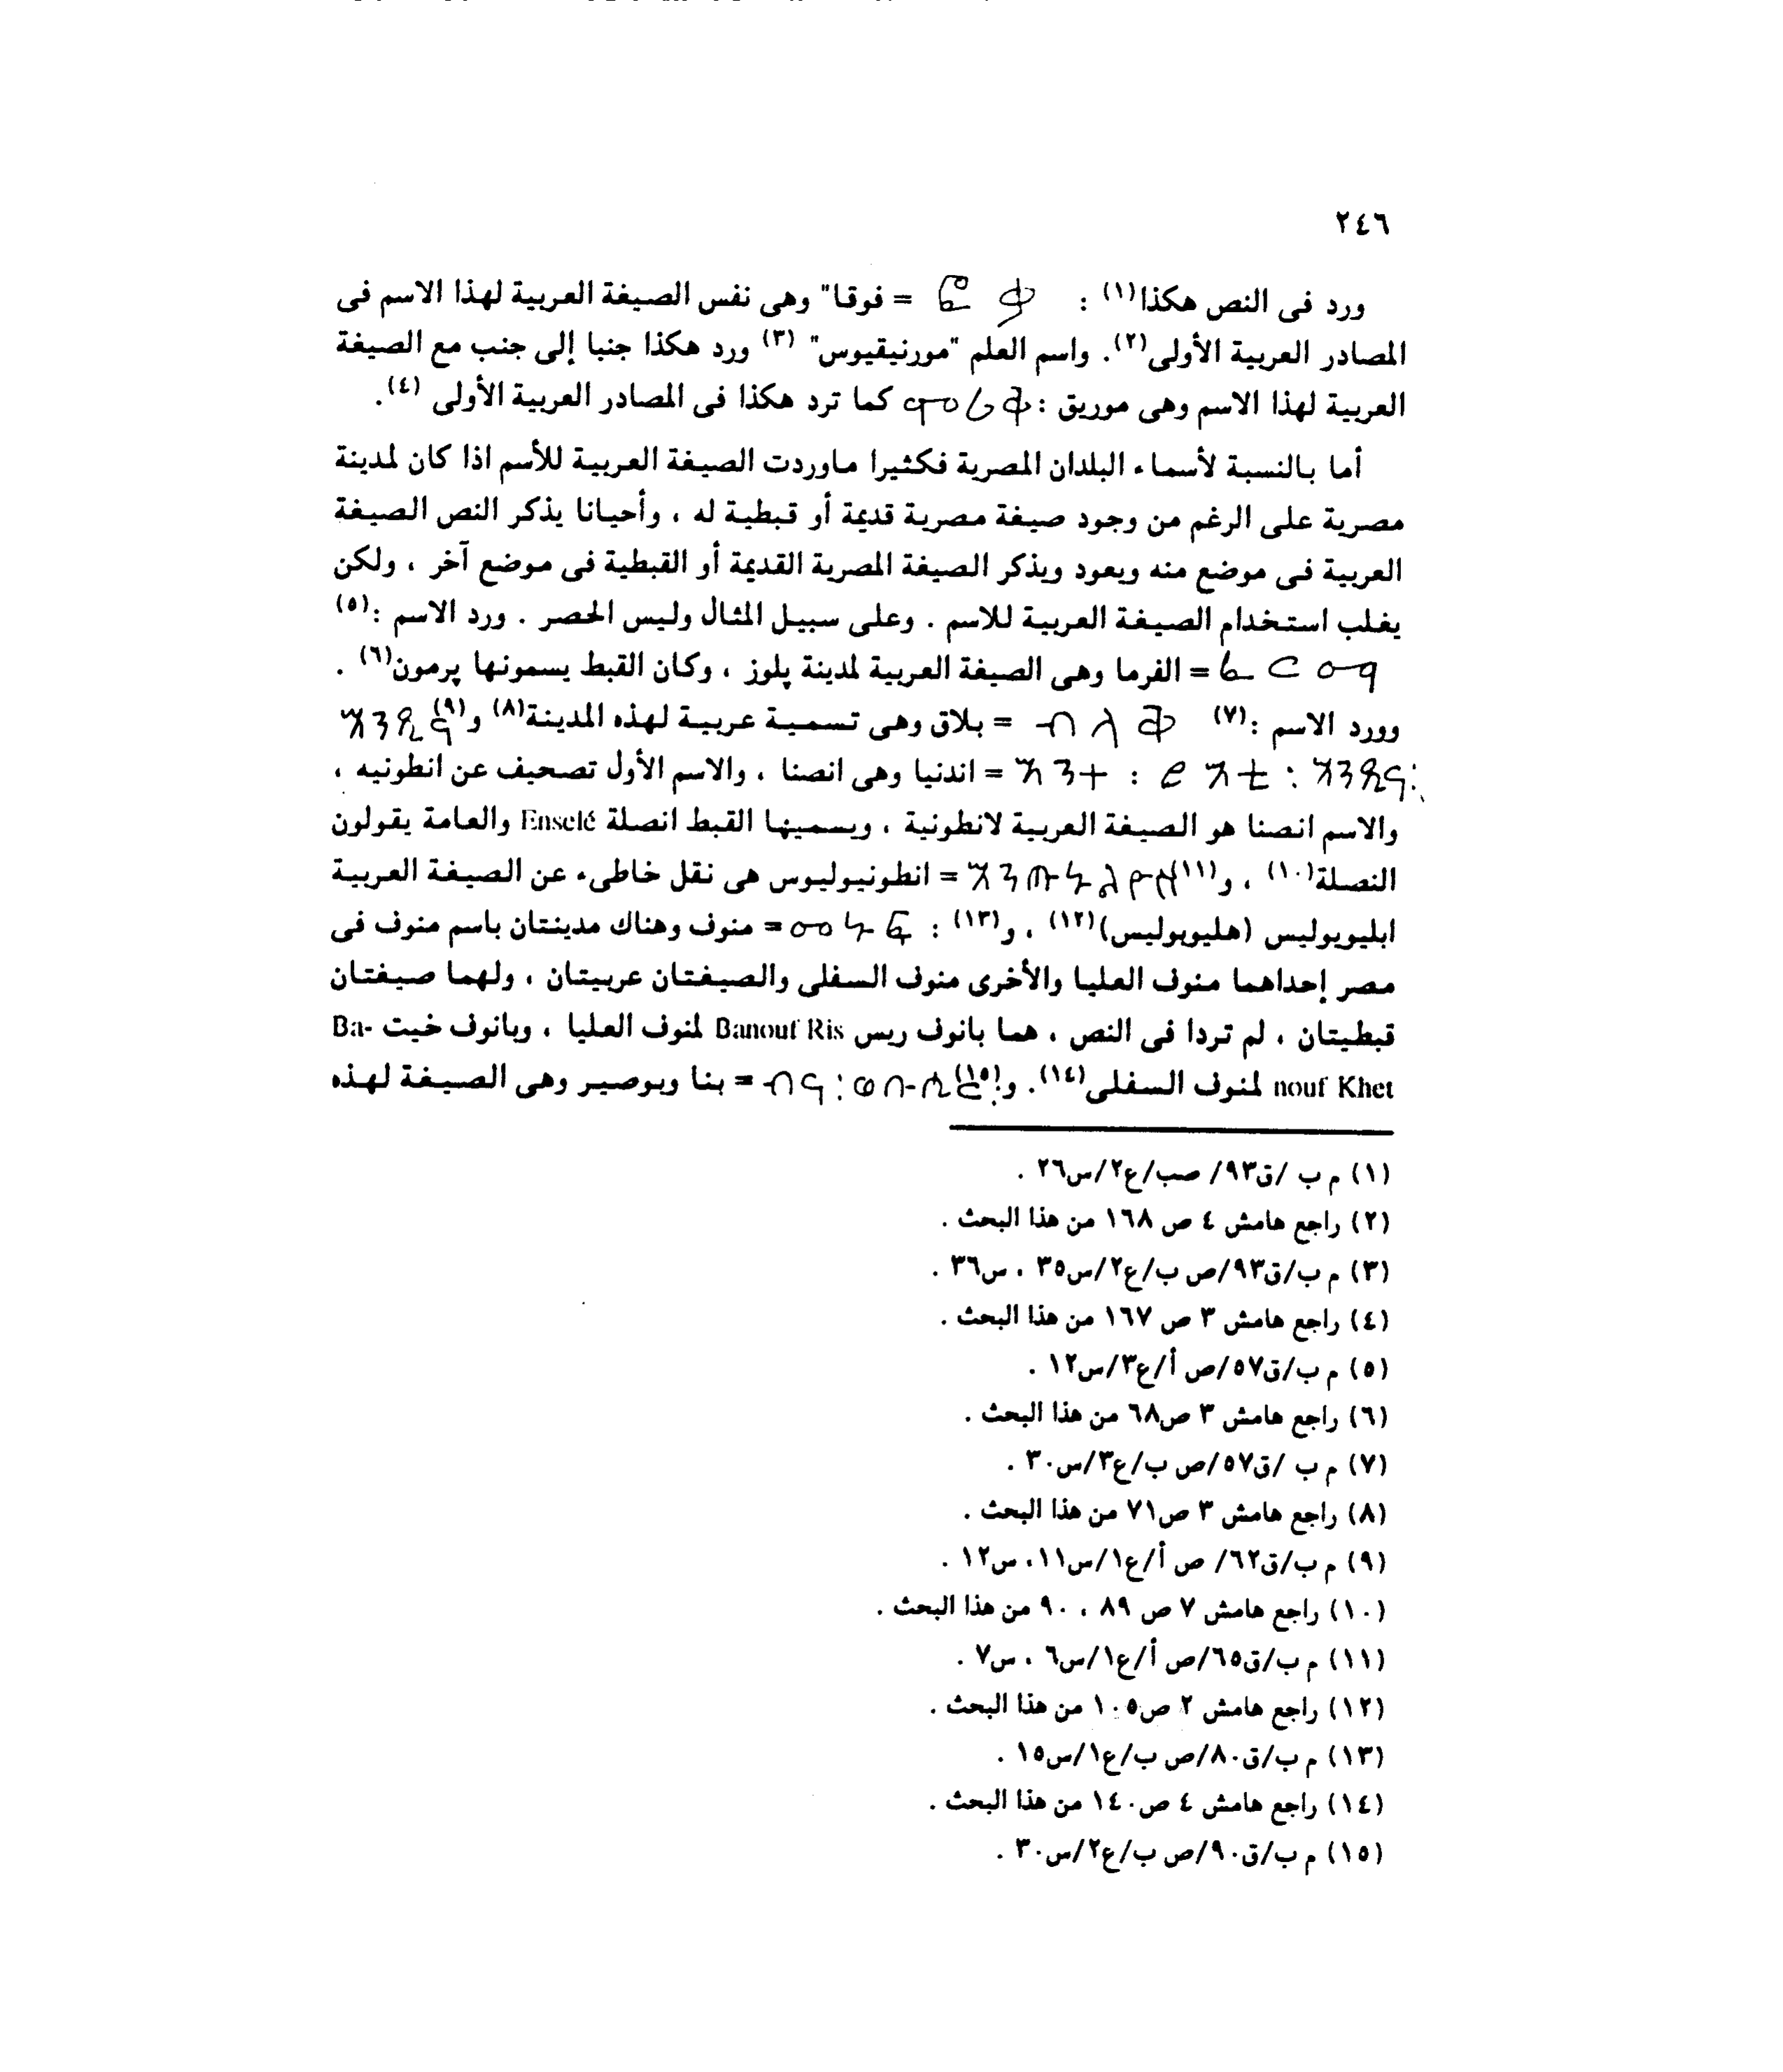 ٢٤٦
ورد فى النص هكذا(١) : = فوقا" وهى نفس الصيغة العربية لهذا الاسم فى
المصادر العربية الأولى(٢). واسم العلم "مورنيقيوس" (٣) ورد هكذا جنبا إلى جنب مع الصيغة
العربية لهذا الاسم وهى موريق : كما ترد هكذا فى المصادر العربية الأولى (٤).
أما بالنسبة لأسماء البلدان المصرية فكثيرا ماوردت الصيغة العربية للأسم اذا كان لمدينة
مصرية على الرغم من وجود صيغة مصرية قديمة أو قبطية له ، وأحيانا يذكر النص الصيغة
العربية فى موضع منه ويعود ويذكر الصيغة المصرية القديمة أو القبطية فى موضع آخر ، ولكن
يغلب استخدام الصيغة العربية للاسم . وعلى سبيل المثال وليس الحصر . ورد الاسم :(٥)
= الفرما وهى الصيغة العربية لمدينة پلوز ، وكان القبط يسمونها پرمون(٦) .
وورد الاسم :(٧) = بلاق وهى تسمية عربية لهذه المدينة(٨) و(٩)
= اندنيا وهى انصنا ، والاسم الأول تصحيف عن انطونيه ،
والاسم انصنا هو الصيغة العربية لانطونية ، ويسميها القبط انصلة Enselé والعامة يقولون
النصلة(١٠) ، و(١١) = انطونيوليوس هى نقل خاطىء عن الصيغة العربية
ابليوبوليس (هليوبوليس)(١٢) ، و(١٣) : = منوف وهناك مدينتان باسم منوف فى
مصر إحداهما منوف العليا والأخرى منوف السفلى والصيغتان عربيتان ، ولهما صيغتان
قبطيتان ، لم تردا فى النص ، هما بانوف ريس Banouf Ris لمنوف العليا ، وبانوف خيت Ba-
nouf Khet لمنوف السفلى(١٤). و(١٥) = بنا وبوصير وهى الصيغة لهذه
(١) م ب /ق٩٣/ صب/ع٢/س٢٦ .
(٢) راجع هامش ٤ ص ١٦٨ من هذا البحث .
(٣) م ب/ق٩٣/ص ب/ع٢/س٣٥ ، س٣٦ .
(٤) راجع هامش ٣ ص ١٦٧ من هذا البحث .
(٥) م ب/ق٥٧/ص أ/ع٣/س١٢ .
(٦) راجع هامش ٣ ص٦٨ من هذا البحث .
(٧) م ب /ق٥٧/ص ب/ع٣/س٣٠ .
(٨) راجع هامش ٣ ص٧١ من هذا البحث .
(٩) م ب/ق٦٢/ ص أ/ع١/س١١، س١٢ .
(١٠) راجع هامش ٧ ص ٨٩ ، ٩٠ من هذا البحث .
(١١) م ب/ق٦٥/ص أ/ع١/س٦ ، س٧ .
(١٢) راجع هامش ٢ ص١٠٥ من هذا البحث .
(١٣) م ب/ق٨٠/ص ب/ع١/س١٥ .
(١٤) راجع هامش ٤ ص١٤٠ من هذا البحث .
(١٥) م ب/ق٩٠/ص ب/ع٢/س٣٠ .